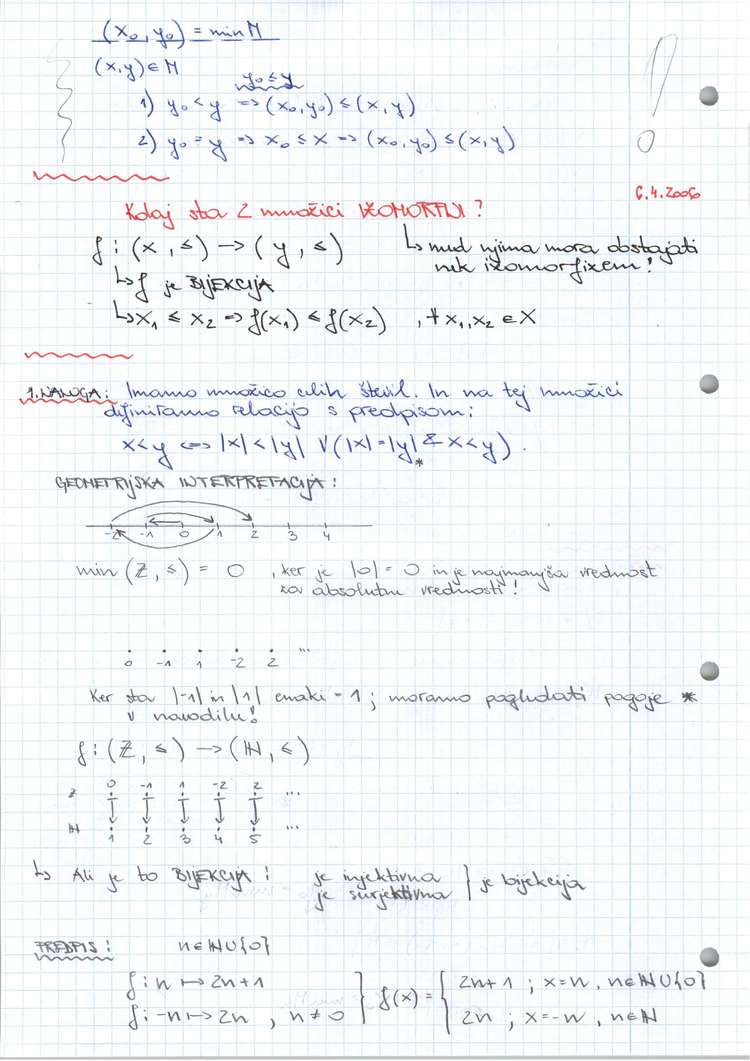 (x₀, y₀) = min M
(x,y) ∈ M
y₀ ≤ y
1) y₀ < y => (x₀, y₀) ≤ (x, y)
2) y₀ = y => x₀ ≤ x => (x₀, y₀) ≤ (x, y)
!
6.4.2006
Kdaj sta 2 množici IZOMORFNI?
f: (x, ≤) → (y, ≤)
↳ med njima mora obstajati
nek izomorfizem!
↳ f je BIJEKCIJA
↳ x₁ ≤ x₂ => f(x₁) ≤ f(x₂) , ∀ x₁, x₂ ∈ X
1. NALOGA: Imamo množico celih števil. In na tej množici
definiramo relacijo s predpisom:
x < y <=> |x| < |y| ∨ (|x| = |y| & x < y).
*
GEOMETRIJSKA INTERPRETACIJA:
-2 -1 0 1 2 3 4
min (ℤ, ≤) = 0 , ker je |0| = 0 in je najmanjša vrednost
za absolutne vrednosti!
0 -1 1 -2 2 ...
Ker sta |-1| in |1| enaki = 1; moramo pogledati pogoje *
v navodilu!
f: (ℤ, ≤) → (ℕ, ≤)
ℤ 0 -1 1 -2 2 ...
ℕ 1 2 3 4 5 ...
↳ Ali je to BIJEKCIJA: je injektivna } je bijekcija
je surjektivna
PREDPIS: n ∈ ℕ ∪ {0}
f: n ↦ 2n+1 } f(x) = { 2n+1 ; x = n, n ∈ ℕ ∪ {0}
f: -n ↦ 2n , n ≠ 0 2n ; x = -n, n ∈ ℕ